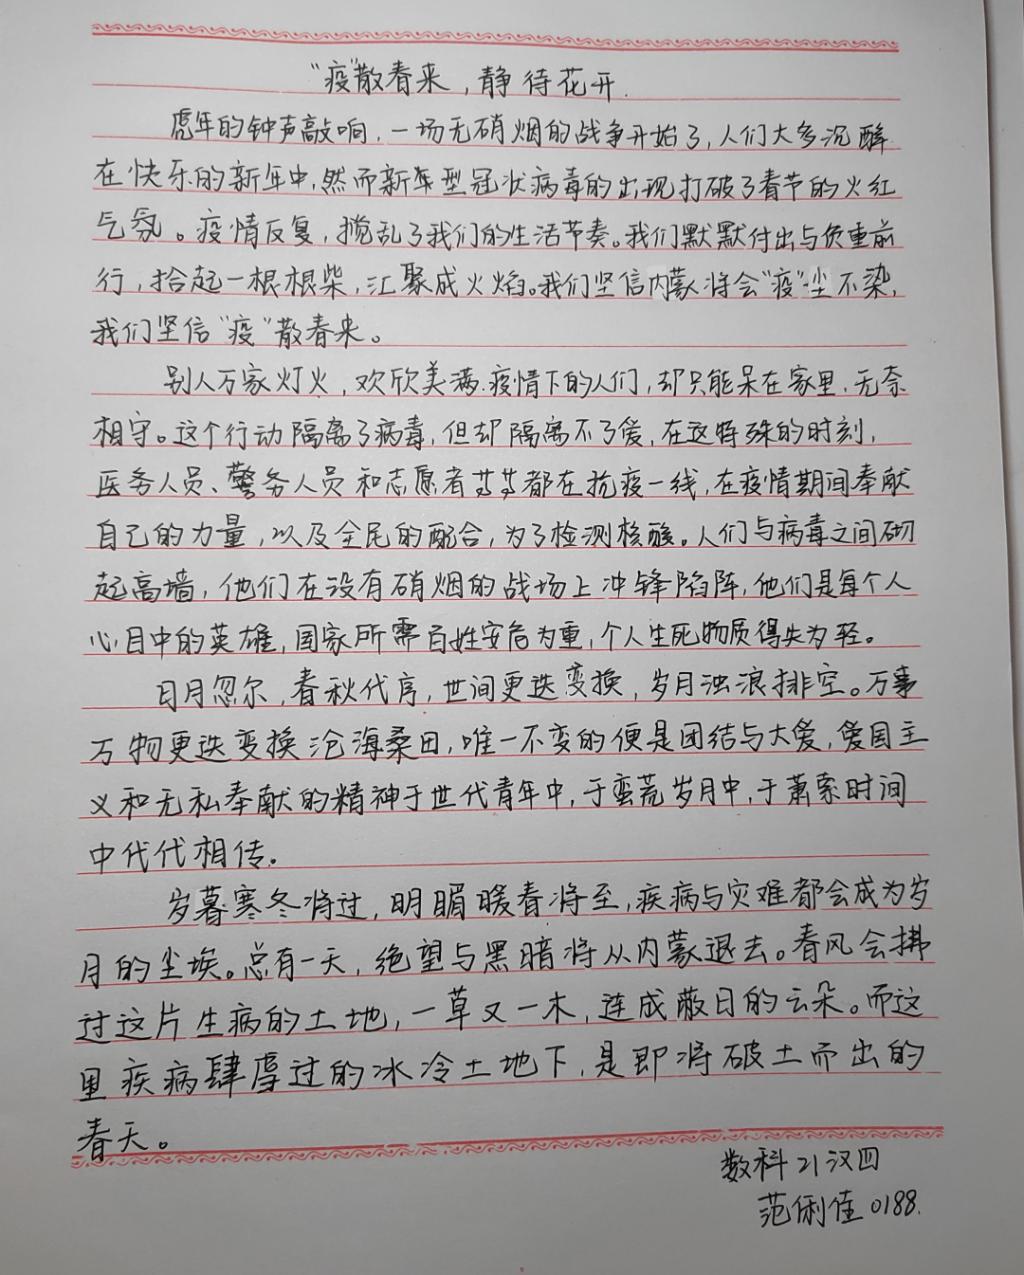 “疫”散春来，静待花开.
虎年的钟声敲响，一场无硝烟的战争开始了，人们大多沉醉
在快乐的新年中，然而新年型冠状病毒的出现打破了春节的火红
气氛。疫情反复，搅乱了我们的生活节奏。我们默默付出与负重前
行，拾起一根根柴，汇聚成火焰。我们坚信内蒙将会“疫”尘不染，
我们坚信“疫”散春来。
别人万家灯火，欢欣美满.疫情下的人们，却只能呆在家里.无奈
相守。这个行动隔离了病毒，但却隔离不了爱，在这特殊的时刻，
医务人员、警务人员和志愿者梦梦都在抗疫一线，在疫情期间奉献
自己的力量，以及全民的配合，为了检测核酸。人们与病毒之间砌
起高墙，他们在没有硝烟的战场上冲锋陷阵，他们是每个人
心目中的英雄，国家所需百姓安危为重，个人生死物质得失为轻。
日月忽尔，春秋代序，世间更迭变换，岁月浊浪排空。万事
万物更迭变换沧海桑田，唯一不变的便是团结与大爱，爱国主
义和无私奉献的精神于世代青年中，于蛮荒岁月中，于萧索时间
中代代相传.
岁暮寒冬将过，明媚暖春将至，疾病与灾难都会成为岁
月的尘埃。总有一天，绝望与黑暗将从内蒙退去。春风会拂
过这片生病的土地，一草又一木，连成蔽日的云朵。而这
里疾病肆虐过的冰冷土地下，是即将破土而出的
春天。
数科21汉四
范俐佳0188.